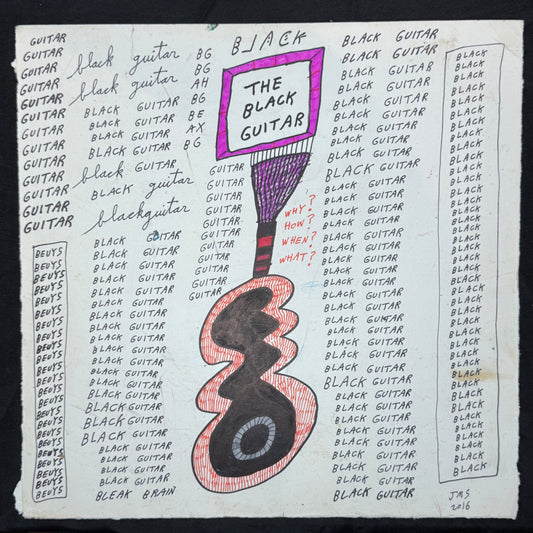 GUITAR
GUITAR
GUITAR
GUITAR
GUITAR
GUITAR
GUITAR
GUITAR
GUITAR
GUITAR
GUITAR
GUITAR
GUITAR
black guitar
black guitar
BLACK GUITAR
BLACK GUITAR
BLACK GUITAR
black GUITAR
BLACK guitar
blackguitar
BG
BG
AH
BG
BE
AX
BG
BLACK
THE
BLACK
GUITAR
GUITAR
GUITAR
GUITAR
GUITAR
GUITAR
GUITAR
GUITAR
GUITAR
GUITAR
GUITAR
GUITAR
WHY?
HOW?
WHEN?
WHAT?
BEUYS
BEUYS
BEUYS
BEUYS
BEUYS
BEUYS
BEUYS
BEUYS
BEUYS
BEUYS
BEUYS
BEUYS
BEUYS
BEUYS
BEUYS
BEUYS
BEUYS
BEUYS
BEUYS
BEUYS
BEUYS
BLACK GUITAR
BLACK GUITAR
BLACK GUITAR
BLACK GUITAR
BLACK GUITAR
BLACK GUITAR
BLACK GUITAR
BLACK GUITAR
BLACK GUITAR
BLACK GUITAR
BLACK GUITAR
BLACK GUITAR
BLACK GUITAR
BLACK GUITAR
BLACK GUITAR
BLACK GUITAR
BLACK GUITAR
BLACK GUITAR
BLACK GUITAR
BLACK GUITAR
BLEAK BRAIN
BLACK GUITAR
BLACK GUITAR
BLACK GUITAR
BLACK GUITAR
BLACK GUITAR
BLACK GUITAR
BLACK GUITAR
BLACK GUITAR
BLACK GUITAR
BLACK GUITAR
BLACK GUITAR
BLACK GUITAR
BLACK GUITAR
BLACK GUITAR
BLACK GUITAR
BLACK GUITAR
BLACK GUITAR
BLACK GUITAR
BLACK GUITAR
BLACK GUITAR
BLACK GUITAR
BLACK GUITAR
BLACK GUITAR
BLACK GUITAR
BLACK GUITAR
BLACK GUITAR
BLACK GUITAR
BLACK GUITAR
BLACK GUITAR
BLACK GUITAR
BLACK GUITAR
BLACK GUITAR
BLACK GUITAR
BLACK GUITAR
BLACK GUITAR
BLACK
BLACK
BLACK
BLACK
BLACK
BLACK
BLACK
BLACK
BLACK
BLACK
BLACK
BLACK
BLACK
BLACK
BLACK
BLACK
BLACK
BLACK
BLACK
BLACK
BLACK
BLACK
BLACK
BLACK
BLACK
BLACK
BLACK
BLACK
BLACK
BLACK
BLACK
BLACK
BLACK
BLACK
BLACK
JMS
2016